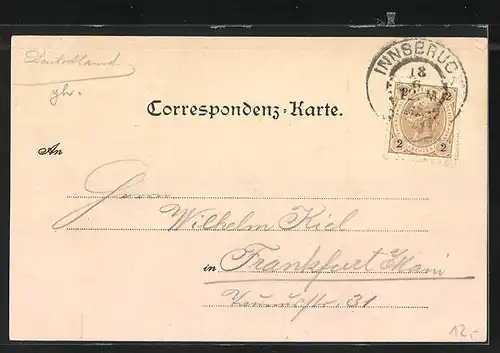 Deutschland
INNSBRUCK
18
Correspondenz-Karte.
2 2
An
Herrn
Wilhelm Kiel
in Frankfurt Main
31
12,-